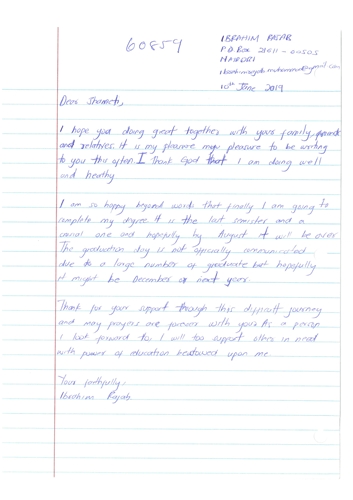 60859
IBRAHIM RAJAB
P.O Box 21611 - 00505
NAIROBI
10th June 2019
Dear
I hope you doing great together with your family, friends
and relatives. It is my pleasure my pleasure to be writing
to you this often. I Thank God that I am doing well
and healthy
I am so happy beyond words that finally I am going to
complete my degree It is the last semister and a
crucial one and hopefully by August it will be over
The graduation day is not officially communicated
due to a large number of graduate but hopefully
it might be December or next year.
Thank for your support through this difficult journey
and may prayers are forever with you. As a person
I look forward to, I will too support other in need
with power of education bestowed upon me.
Yours faithfully,
Ibrahim Rajab